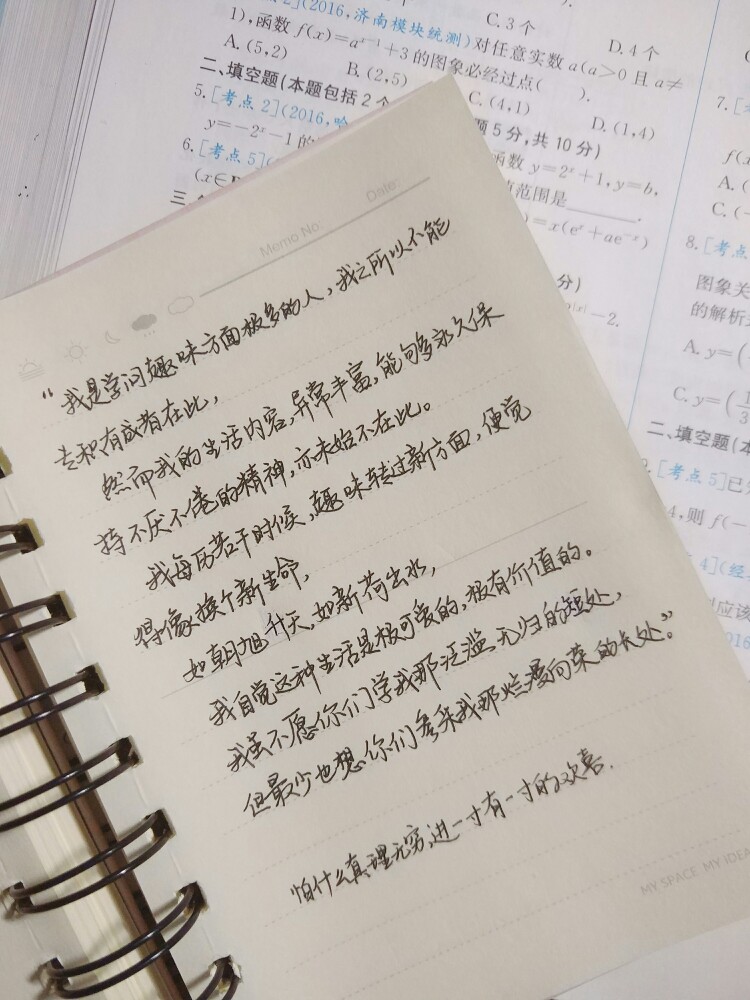 2](2016,济南模块统测)对任意实数 a(a>0 且 a≠
C. 3 个
D. 4 个
1),函数 f(x)=a^{x-1}+3 的图象必经过点( ).
A. (5,2)
B. (2,5)
C. (4,1)
D. (1,4)
二、填空题(本题包括 2 个
题 5 分,共 10 分)
5. [考点 2](2016,哈
y=-2^x-1 的
函数 y=2^x+1,y=b,
6. [考点 5](
范围是
(x∈
)=x(e^x+ae^{-x})
三
分)
-2.
7. [
f(x
A. (
C. (-
8. [考点
图象关
的解析
A. y=(
C. y=(1/3
二、填空题(本
[考点 5]已
4,则 f(-
4](经
应该
016
Memo No:
Date:
“我是学问趣味方面极多的人,我之所以不能
专积有成者在此,
然而我的生活内容,异常丰富,能够永久保
持不厌不倦的精神,亦未始不在此。
我每历若干时候,趣味转过新方面,便觉
得像换个新生命,
如朝旭升天,如新荷出水,
我自觉这种生活是极可爱的,极有价值的。
我虽不愿你们学我那泛滥无归的短处,
但最少也想你们参采我那烂漫向荣的长处。”
怕什么真理无穷,进一寸有一寸的欢喜.
MY SPACE MY IDEA